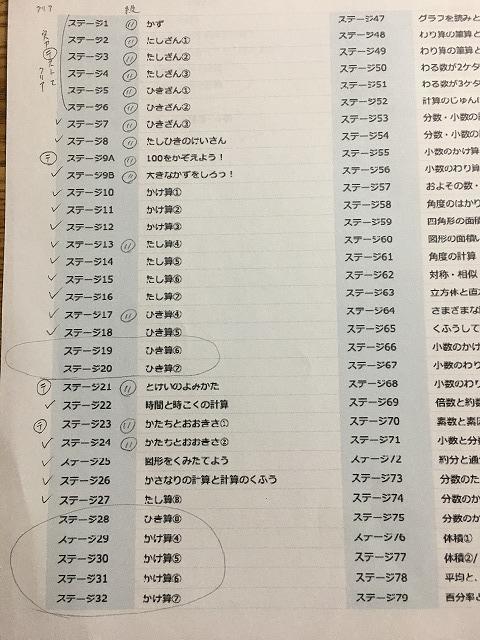 クリア 級
ステージ1 〃 かず
ステージ2 〃 たしざん①
ステージ3 〃 たしざん②
ステージ4 〃 たしざん③
ステージ5 〃 ひきざん①
ステージ6 〃 ひきざん②
ステージ7 〃 ひきざん③
ステージ8 〃 たしひきのけいさん
テ ステージ9A 〃 100をかぞえよう！
ステージ9B 〃 大きなかずをしろっ！
ステージ10 かけ算①
ステージ11 かけ算②
ステージ12 かけ算③
ステージ13 〃 たし算④
ステージ14 たし算⑤
ステージ15 たし算⑥
ステージ16 たし算⑦
ステージ17 〃 ひき算④
ステージ18 ひき算⑤
ステージ19 ひき算⑥
ステージ20 ひき算⑦
テ ステージ21 〃 とけいのよみかた
ステージ22 時間と時こくの計算
テ ステージ23 〃 かたちとおおきさ①
ステージ24 〃 かたちとおおきさ②
ステージ25 図形をくみたてよう
ステージ26 かさなりの計算と計算のくふう
ステージ27 たし算⑧
ステージ28 ひき算⑧
ステージ29 かけ算④
ステージ30 かけ算⑤
ステージ31 かけ算⑥
ステージ32 かけ算⑦
ステージ47 グラフを読みと
ステージ48 わり算の筆算と
ステージ49 わり算の筆算と
ステージ50 わる数が2ケタ
ステージ51 わる数が3ケタ
ステージ52 計算のじゅん
ステージ53 分数・小数の
ステージ54 分数・小数の
ステージ55 小数のかけ算
ステージ56 小数のわり算
ステージ57 およその数・
ステージ58 角度のはかり
ステージ59 四角形の面積
ステージ60 図形の面積
ステージ61 角度の計算
ステージ62 対称・相似
ステージ63 立方体と直
ステージ64 さまざまな
ステージ65 くふうして
ステージ66 小数のかけ
ステージ67 小数のわり
ステージ68 小数のわり
ステージ69 倍数と約数
ステージ70 素数と素因
ステージ71 小数と分
ステージ72 約分と通
ステージ73 分数のた
ステージ74 分数のか
ステージ75 分数のか
ステージ76 体積①
ステージ77 体積②/
ステージ78 平均と、
ステージ79 百分率と